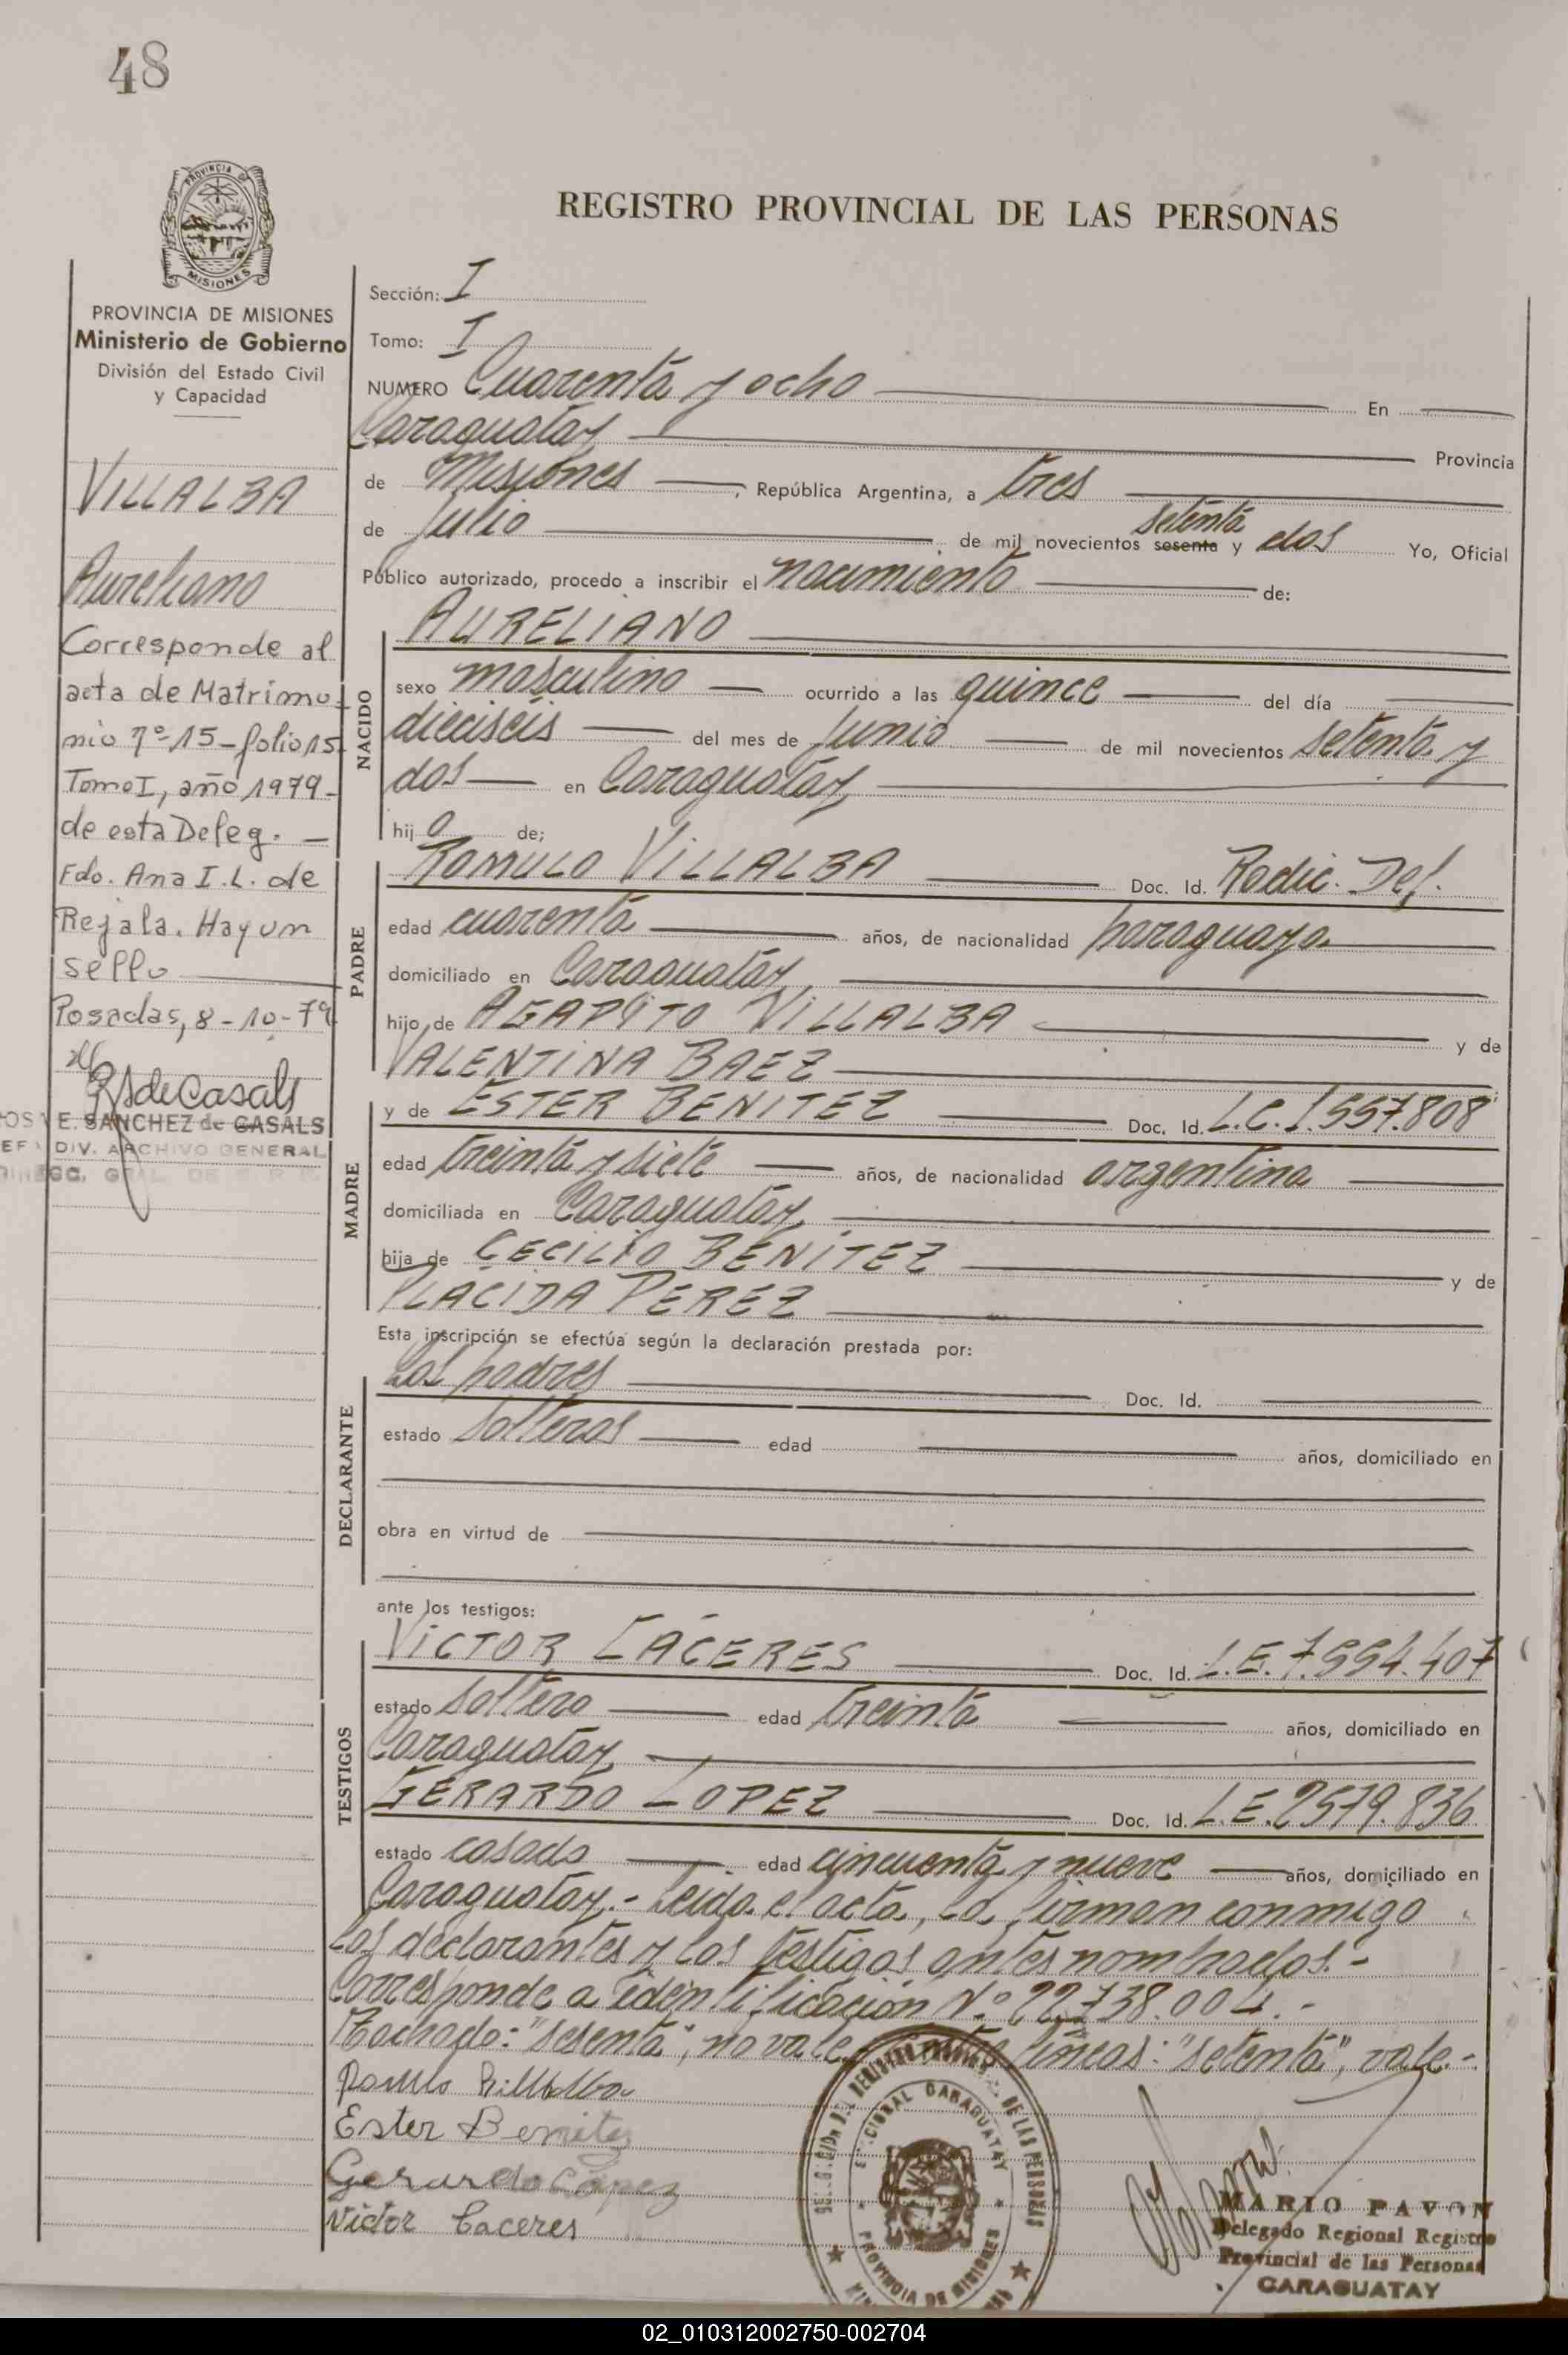 48
PROVINCIA DE
MISIONES
REGISTRO PROVINCIAL DE LAS PERSONAS
PROVINCIA DE MISIONES
Ministerio de Gobierno
División del Estado Civil
y Capacidad
VILLALBA
Aureliano
Corresponde al
acta de Matrimo-
nio nº 15 - folio 15
Tomo I, año 1979 -
de esta Deleg. -
Fdo. Ana I. L. de
Rejala. Hay un
sello
Posadas, 8-10-79
RSdeCasals
E. SANCHEZ de CASALS
DIV. ARCHIVO GENERAL
Sección: I
Tomo: I
NUMERO Cuarenta y ocho En
Caraguatay Provincia
de Misiones, República Argentina, a tres
setenta
de Julio de mil novecientos sesenta y dos Yo, Oficial
Público autorizado, procedo a inscribir el nacimiento de:
NACIDO
AURELIANO
sexo masculino ocurrido a las quince del día
dieciseis del mes de Junio de mil novecientos setenta y
dos en Caraguatay
hijo de;
PADRE
ROMULO VILLALBA Doc. Id. Radic. Def.
edad cuarenta años, de nacionalidad paraguaya
domiciliado en Caraguatay
hijo de AGAPITO VILLALBA y de
VALENTINA BAEZ
MADRE
y de ESTER BENITEZ Doc. Id. L.C.1.557.808
edad treinta y siete años, de nacionalidad argentina
domiciliada en Caraguatay
hija de CECILIO BENITEZ y de
PLACIDA PEREZ
Esta inscripción se efectúa según la declaración prestada por:
DECLARANTE
Los padres Doc. Id.
estado Solteros edad años, domiciliado en
obra en virtud de
ante los testigos:
TESTIGOS
VICTOR CACERES Doc. Id. L.E.7.554.407
estado Soltero edad treinta años, domiciliado en
Caraguatay
GERARDO LOPEZ Doc. Id. L.E.2579.836
estado casado edad cincuenta y nueve años, domiciliado en
Caraguatay.- Leida el acta, la firman conmigo
los declarantes y los testigos antes nombrados.-
Corresponde a identificación Nº 22.738.004.-
Tachado: "sesenta", no vale líneas: "setenta", vale.-
Romulo Villalba
Ester Benitez
Gerardo Lopez
Victor Caceres
DEL REGISTRO DE LAS PERSONAS
CARAGUATAY
PROVINCIA DE MISIONES
MARIO PAVON
Delegado Regional Registro
Provincial de las Personas
CARAGUATAY
02_010312002750-002704